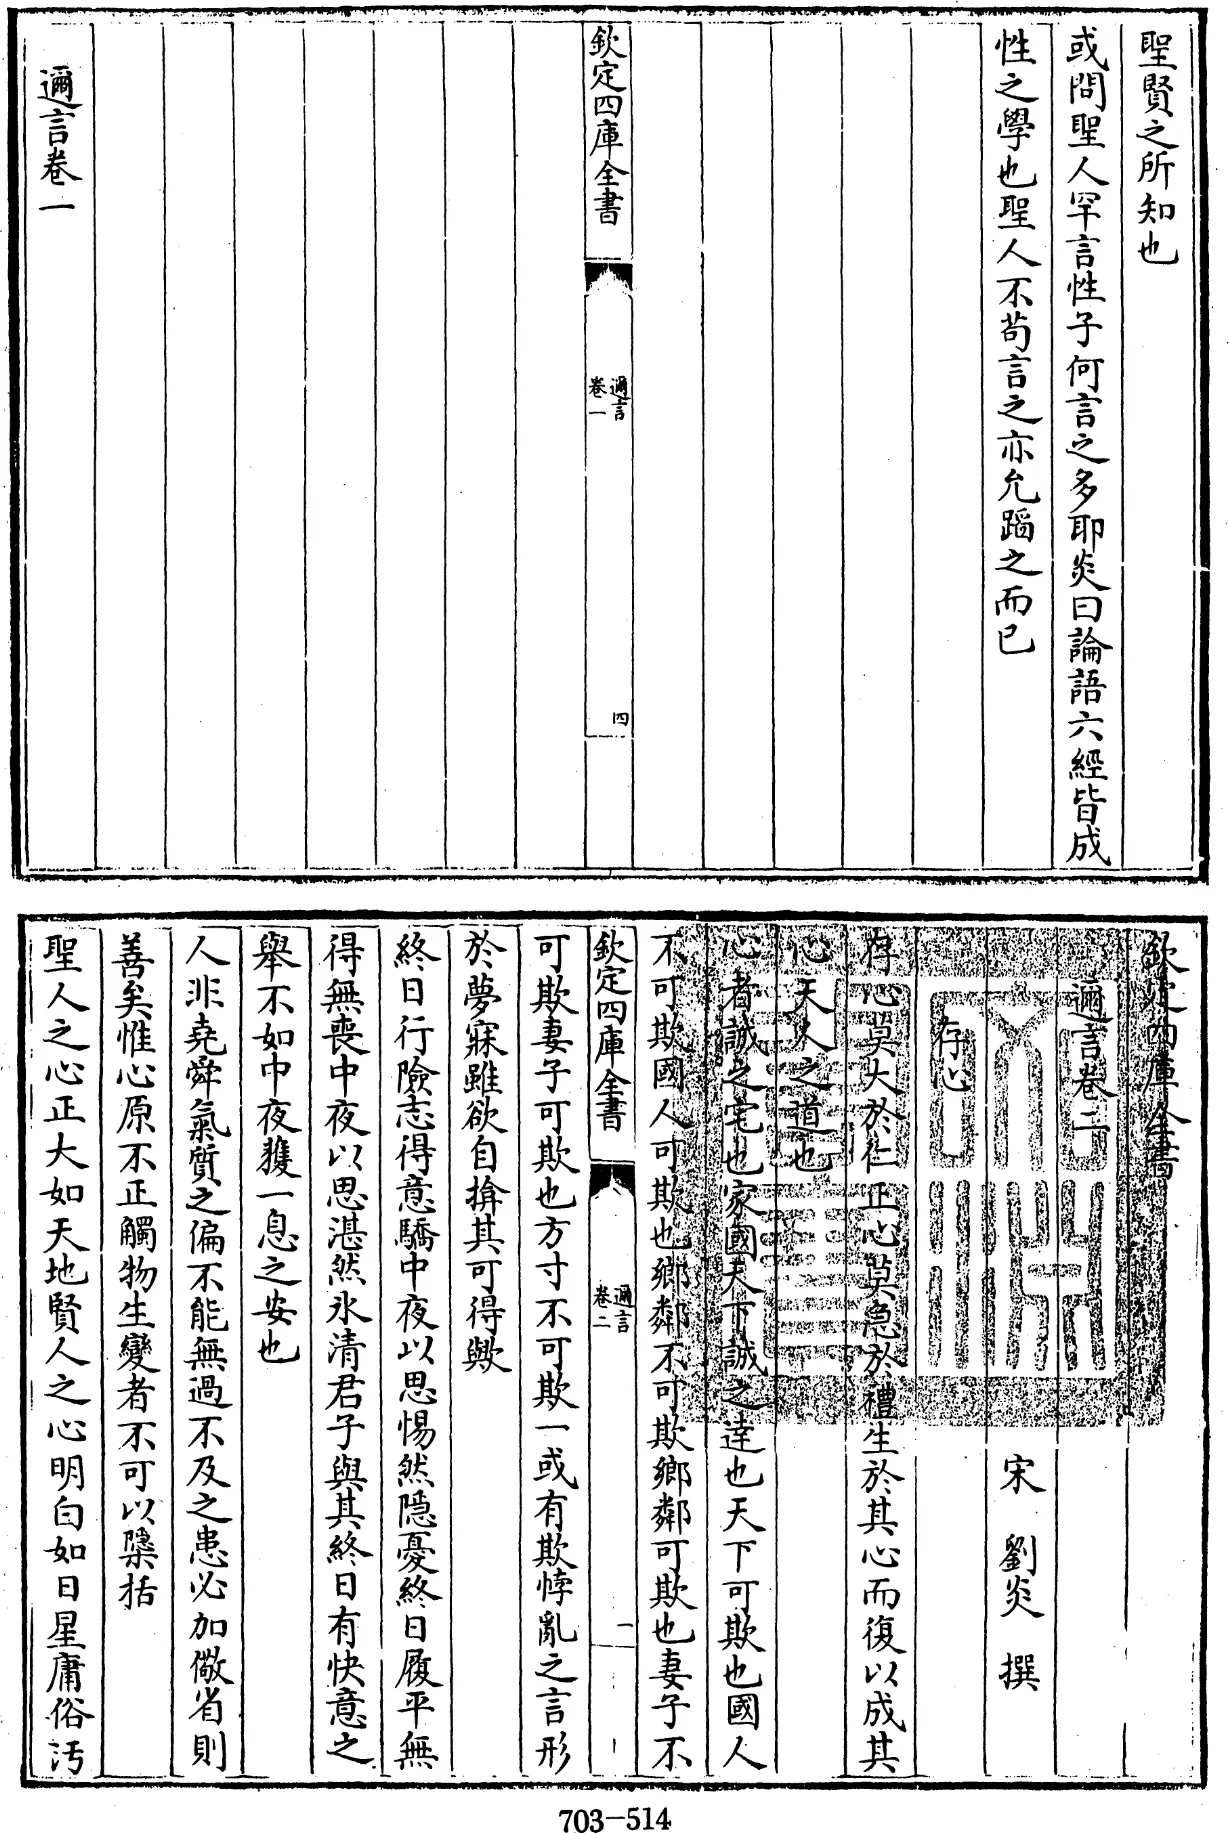 聖賢之所知也
或問聖人罕言性子何言之多耶炎曰論語六經皆成
性之學也聖人不苟言之亦允蹈之而已
欽定四庫全書
邇言
卷一
四
邇言卷一
欽定四庫全書
邇言卷二
宋 劉炎 撰
存心
存心莫大於仁正心莫急於禮生於其心而復以成其
心天人之道也
心者誠之宅也家國天下誠之達也天下可欺也國人
不可欺國人可欺也鄉鄰不可欺鄉鄰可欺也妻子不
欽定四庫全書
邇言
卷二
一
可欺妻子可欺也方寸不可欺一或有欺悖亂之言形
於夢寐雖欲自揜其可得歟
終日行險志得意驕中夜以思惕然隱憂終日履平無
得無喪中夜以思湛然氷清君子與其終日有快意之
舉不如中夜獲一息之安也
人非堯舜氣質之偏不能無過不及之患必加儆省則
善矣惟心原不正觸物生變者不可以檃括
聖人之心正大如天地賢人之心明白如日星庸俗汚
703-514